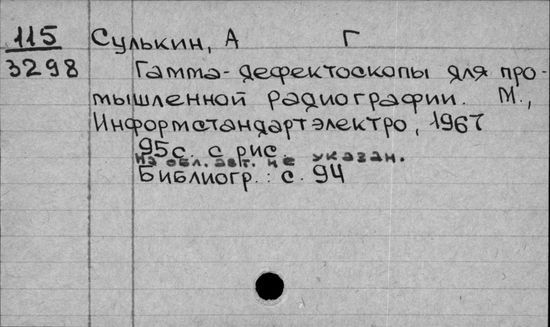 115 Сулькин, А Г
3298 Гамма-дефектоскопы для про-
мышленной радиографии. М.,
Информстандартэлектро, 1967
95с. с рис.
На обл. авт. не указан.
Библиогр.: с. 94